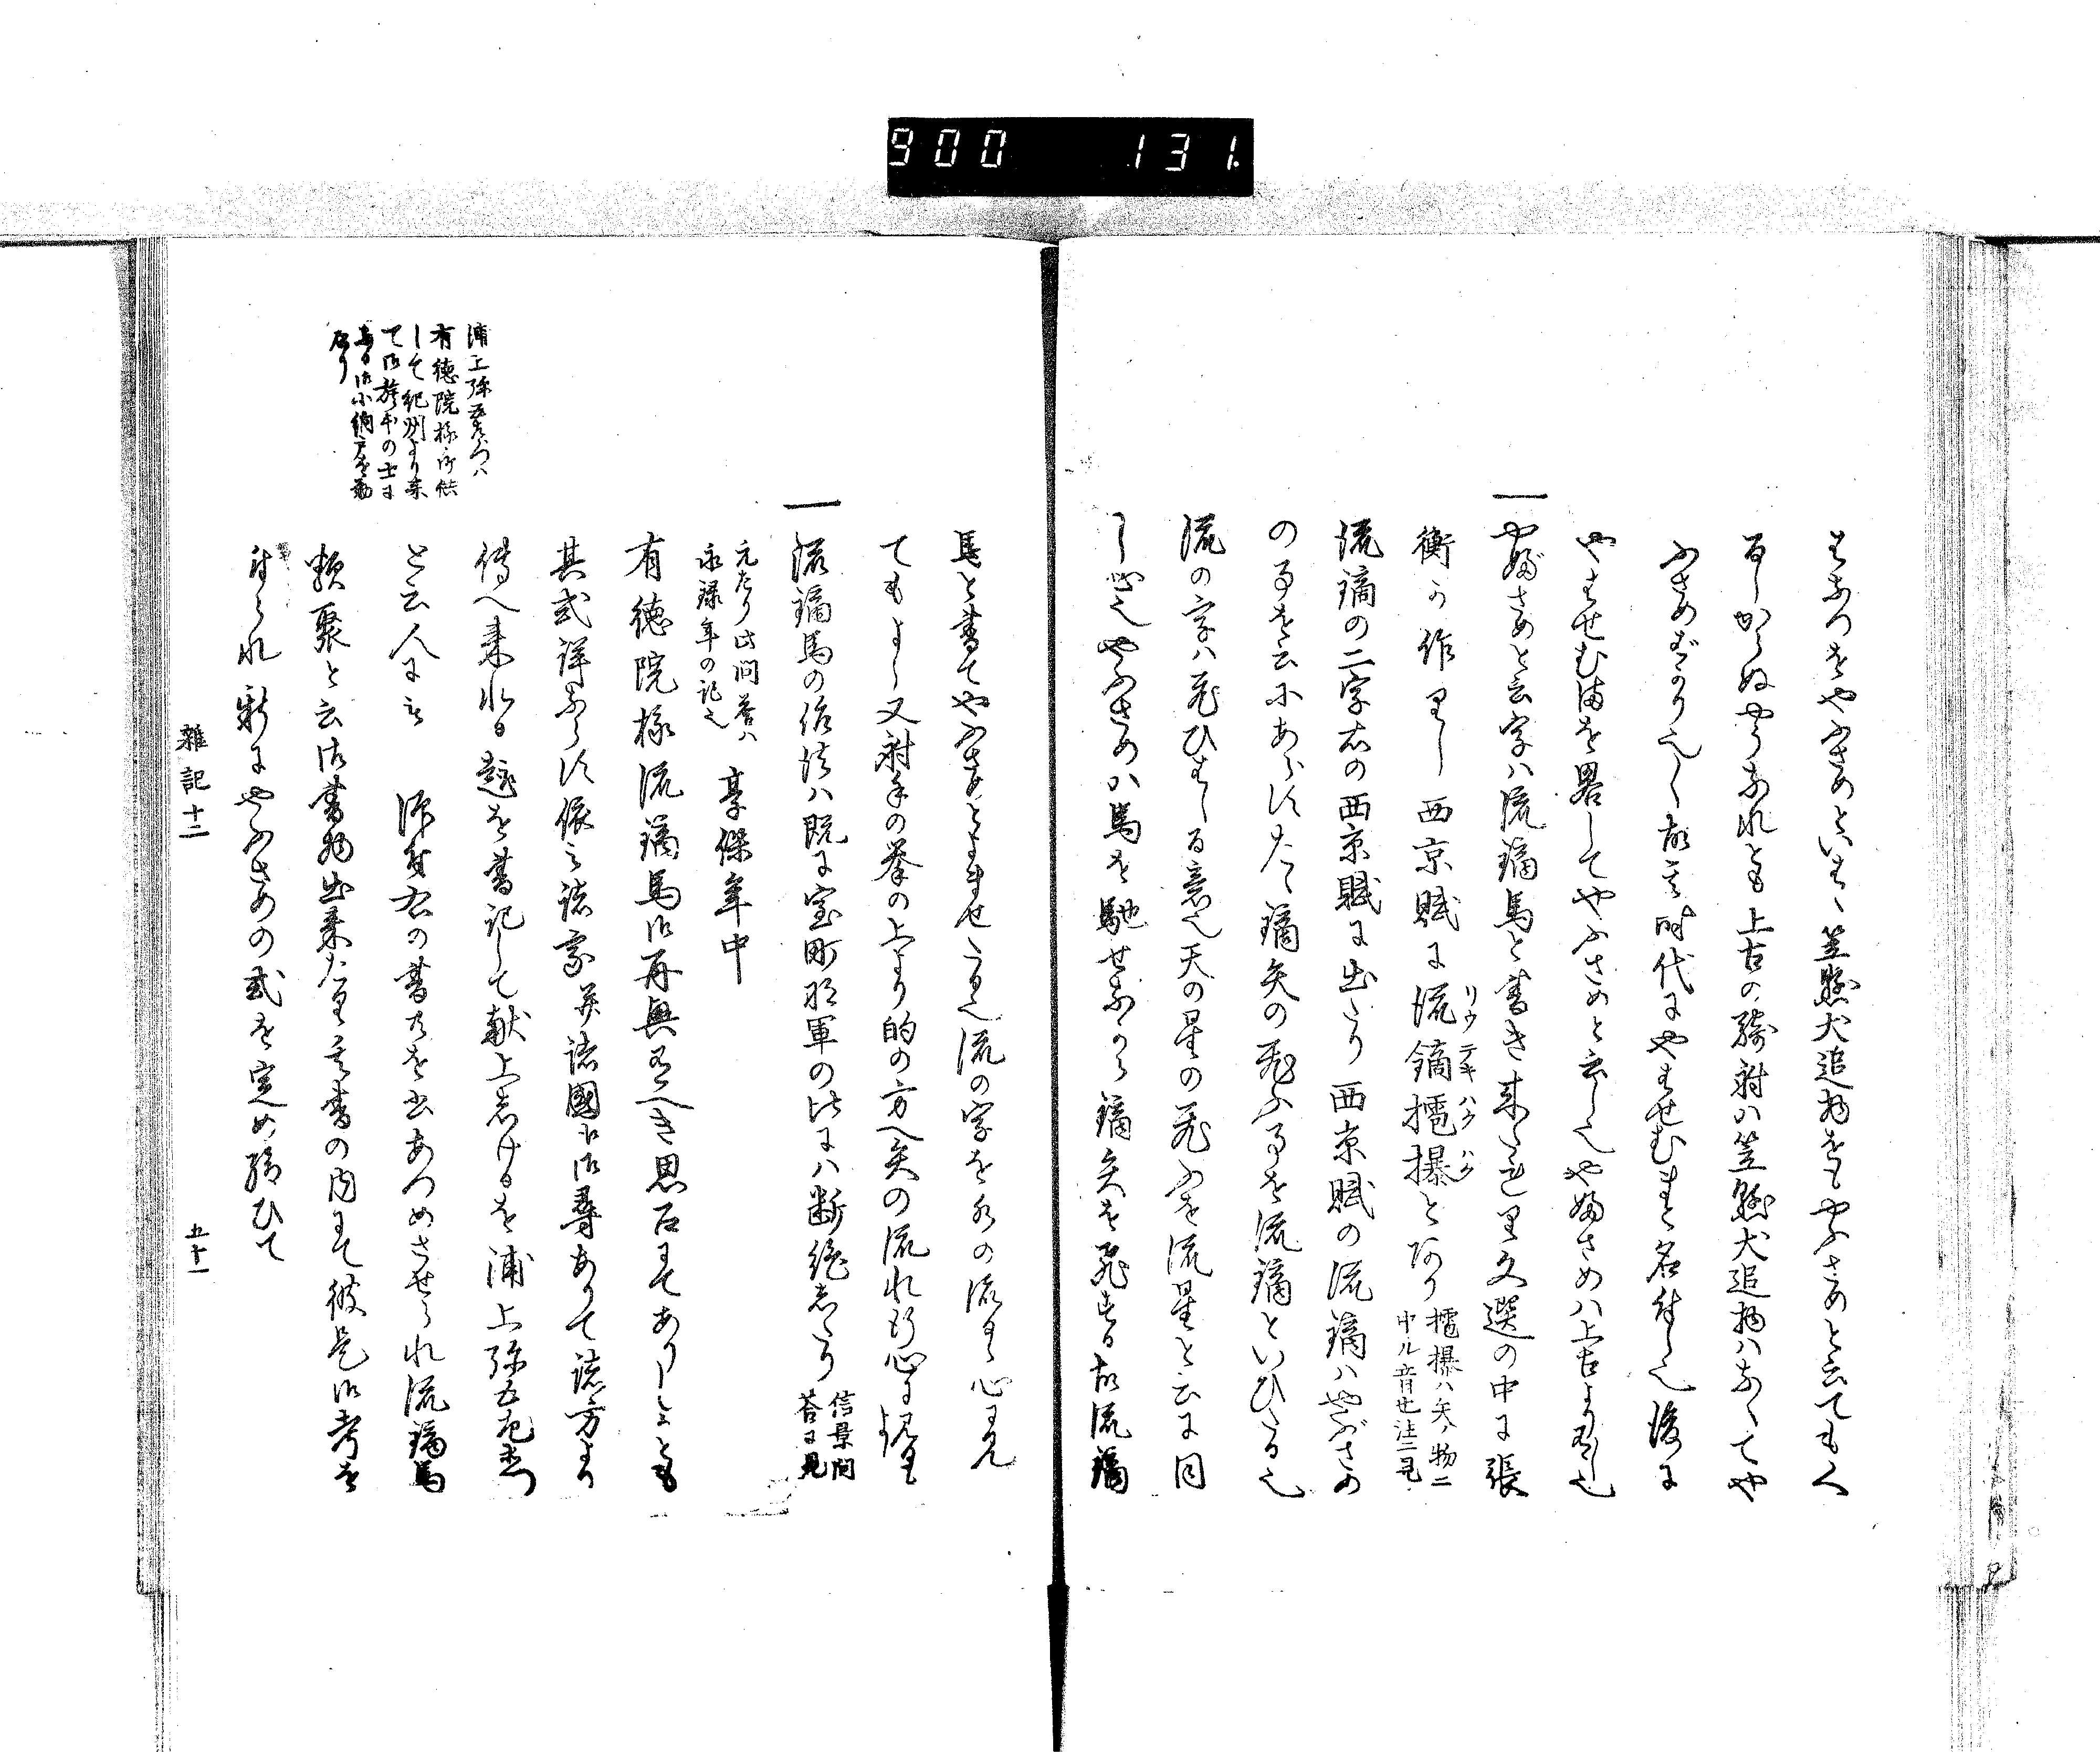 900 131.
はなつをやふさめといはゝ笠懸犬追物をもやふさめと云てもく
るしからぬやうなれとも上古の騎射ハ笠懸犬追物ハなくてや
ふさめばかり也し故其時代にやはせむまと名付し也後に
やはせむまを畧してやふさめと云し也やぶさめハ上古より有し也
一やぶさめと云字ハ流鏑馬と書き来たれり文選の中に張
衡の作りし西京賦に流鏑㩧攥とあり
リウテキハクハク
流鏑の二字右の西京賦に出たり西京賦の流鏑ハやぶさめ
の事を云にあらすたゝ鏑矢の飛ふ事を流鏑といひたる也
流の字ハ飛ひはしる意也天の星の飛ふを流星と云に同
し心也やふさめハ馬を馳せなから鏑矢を飛はする故流鏑
馬と書てやふさめとよませたる也流の字を水の流るゝ心に見
てもよし又射手の拳の上より的の方へ矢の流れ行心に見
一流鏑馬の作法ハ既に室町将軍の比にハ断絶したり
信景問
答に見
元たり此問答ハ
永禄年の記也
享保年中
有徳院様流鏑馬御再興有へき思召にてありしかとも
其式詳ならす依之諸家并諸國江御尋ありて諸方より
傳へ来れる趣を書記して献上しけるを浦上弥五左衛門
と云人に
右の書共をあつめさせられ流鏑馬
類聚と云御書物出来たり其書の内にて彼是御考を
付られ新にやふさめの式を定め給ひて
浦上弥五左衛門ハ
有徳院様御供
して紀州より来
て御旗本の士に
御小納戸を勤
たり
雑記十二
五十一